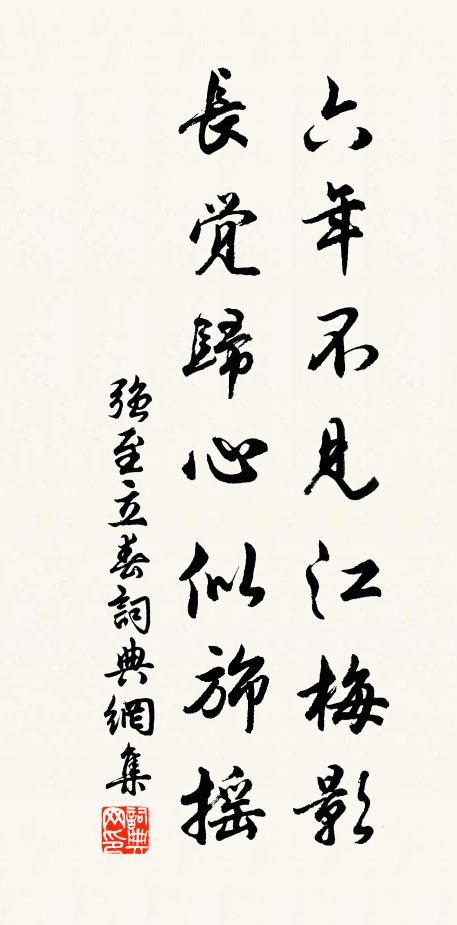 六年不見江梅影
長覚歸心似旆摇
強至立春詞典網集
詞典网印